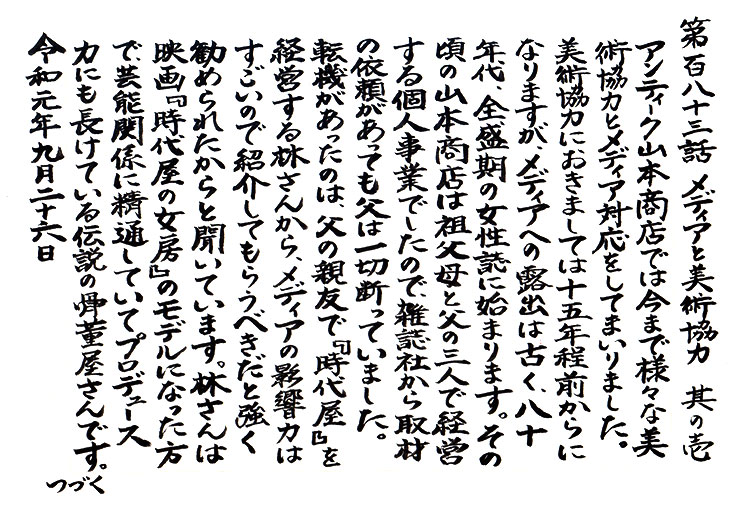 第百八十三話 メディアと美術協力 其の壱
アンティク山本商店では今まで様々な美
術協力とメディア対応をしてまいりました。
美術協力におきましては十五年程前からに
なりますが、メディアへの露出は古く、八十
年代、全盛期の女性誌に始まります。その
頃の山本商店は祖父母と父の三人で経営
する個人事業でしたので、雑誌社から取材
の依頼があっても父は一切断っていました。
転機があったのは、父の親友で『時代屋』を
経営する林さんから、メディアの影響力は
すごいので紹介してもらうべきだと強く
勧められたからと聞いています。林さんは
映画『時代屋の女房』のモデルになった方
で、芸能関係に精通していてプロデュース
力にも長けている伝説の骨董屋さんです。
つづく
令和元年九月二十六日